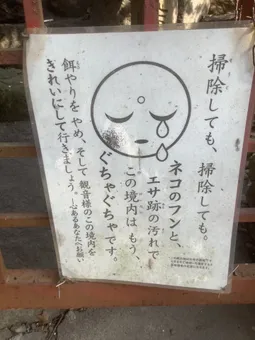 掃除しても、掃除しても。
ネコのフンと、
エサ跡の汚れで
この境内は もう、
ぐちゃぐちゃです。
餌やりをやめ、そして観音様のこの境内を
きれいにして行きましょう。―心あるあなたへお願い